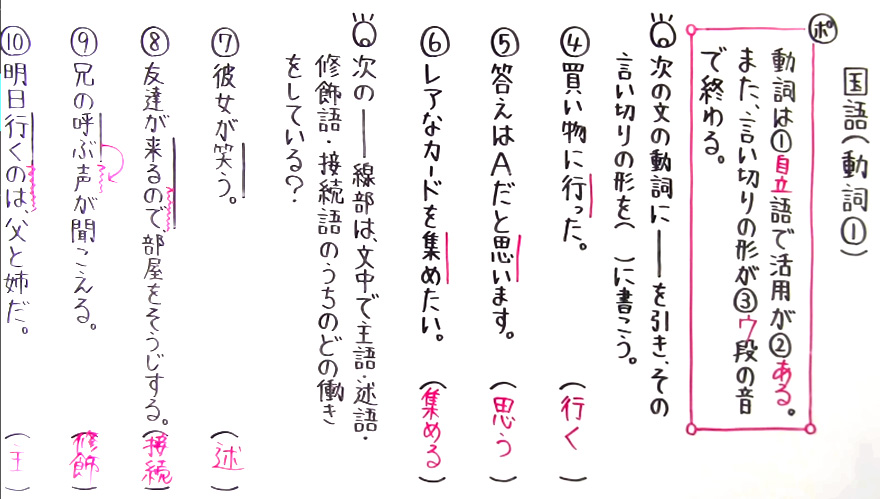 国語(動詞①)
ポ
動詞は①自立語で活用が②ある。
また、言い切りの形が③ウ段の音
で終わる。
次の文の動詞に──を引き、その
言い切りの形を( )に書こう。
④買い物に行った。(行く)
⑤答えはAだと思います。(思う)
⑥レアなカードを集めたい。(集める)
次の──線部は、文中で主語・述語・
修飾語・接続語のうちのどの働き
をしている?
⑦彼女が笑う。(述)
⑧友達が来るので、部屋をそうじする。(接続)
⑨兄の呼ぶ声が聞こえる。(修飾)
⑩明日行くのは、父と姉だ。(主)